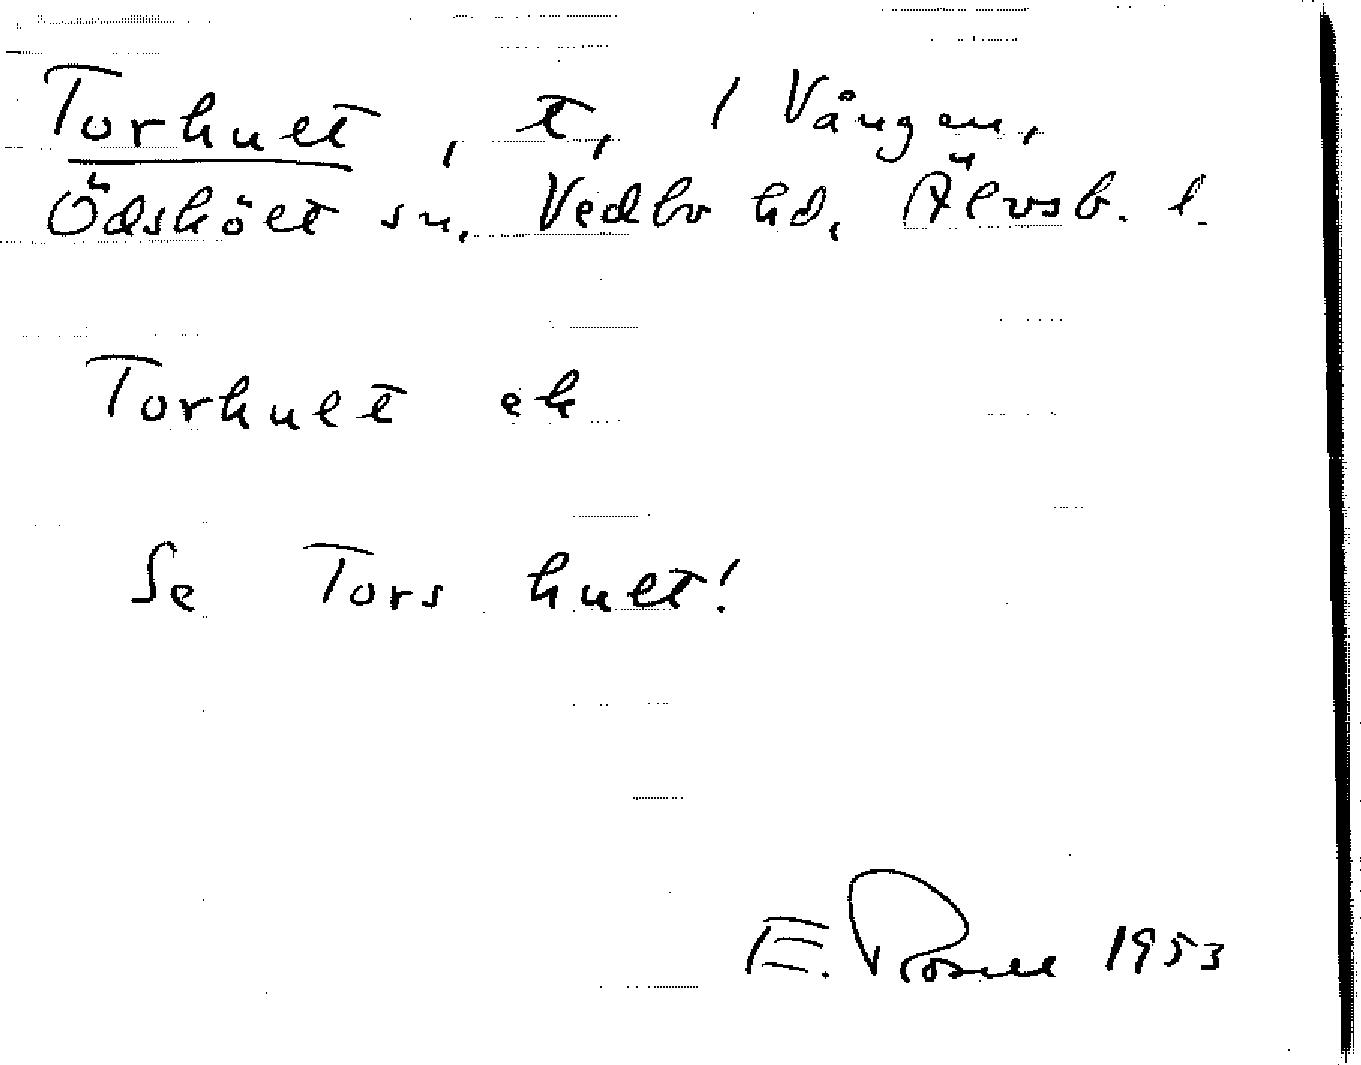 Torhult, t, 1 Vången,
Ödskölt sn, Vedbo hd, Älvsb. l.
Torhult ek
Se Tors hult!
E. Rosell 1953